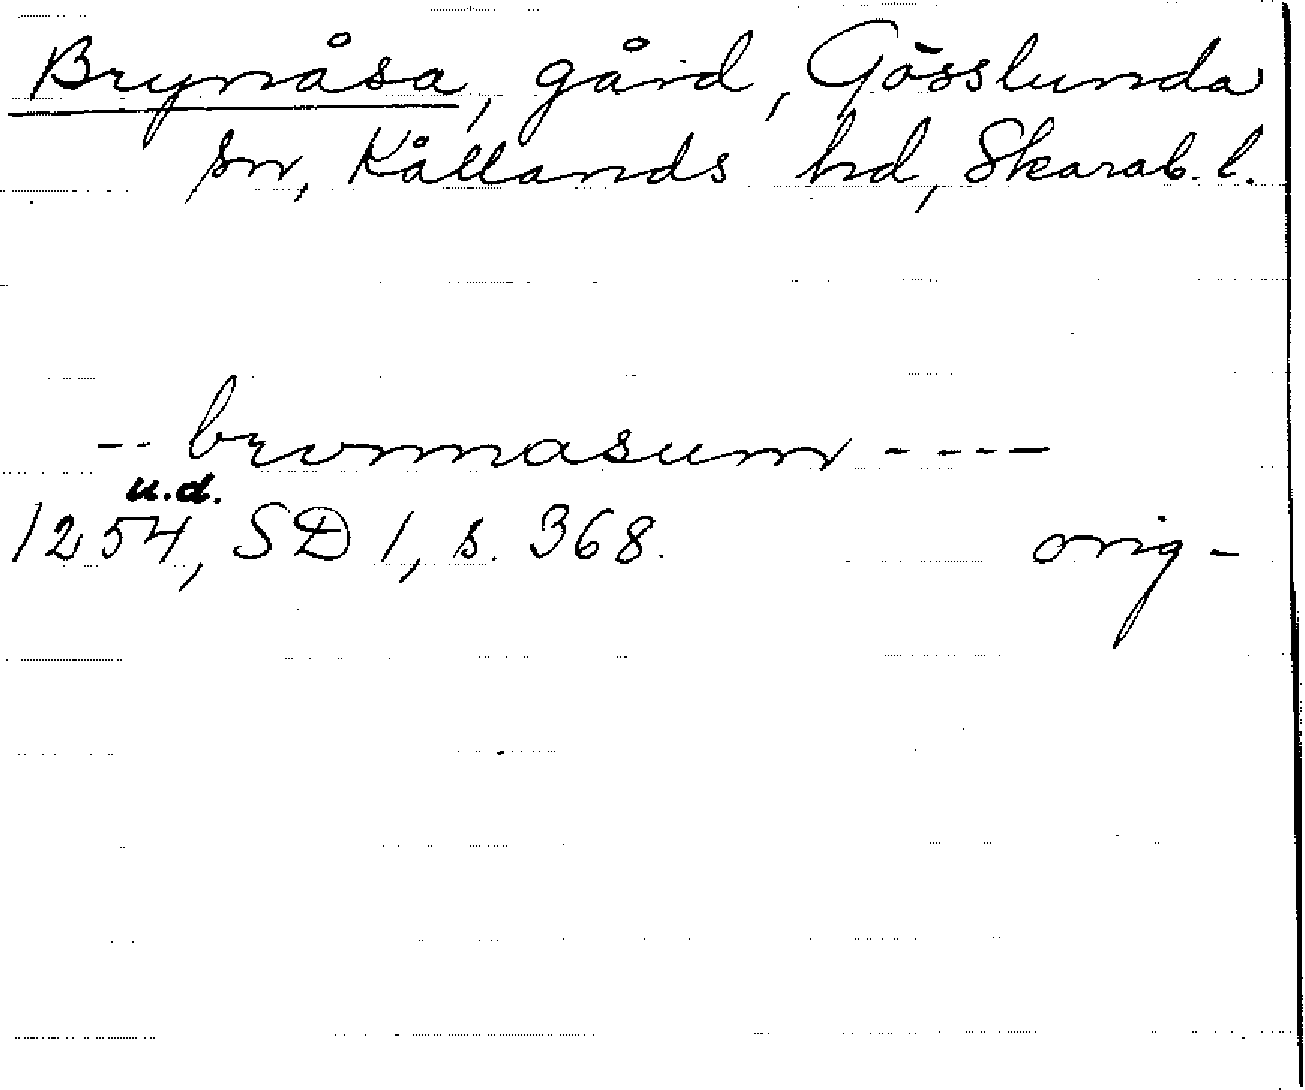 Brynåsa, gård, Gösslunda
sn, Kållands hd, Skarab. l.
-- bronnasum ----
u.d.
1254, SD 1, s. 368. orig-